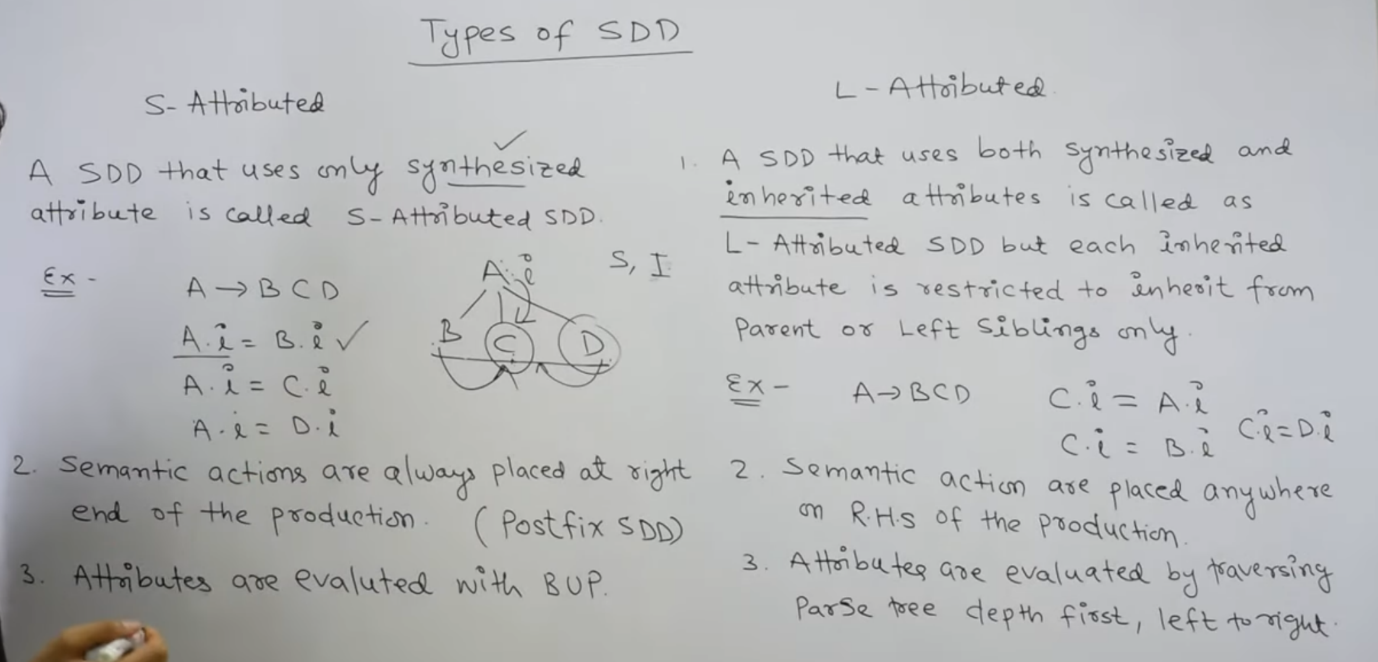 Types of SDD
S- Attributed
A SDD that uses only synthesized
attribute is called S-Attributed SDD.
Ex -
A → B C D
A.i = B.i ✓
A.i = C.i
A.i = D.i
A.i
B C D
S, I
2. Semantic actions are always placed at right
end of the production. (Postfix SDD)
3. Attributes are evaluted with BUP.
L - Attributed
1. A SDD that uses both synthesized and
inherited attributes is called as
L- Attributed SDD but each inherited
attribute is restricted to inherit from
Parent or Left Siblings only.
Ex - A→BCD C.i = A.i
C.i = B.i C.i=D.i
2. Semantic action are placed anywhere
on R.H.S of the production.
3. Attributes are evaluated by traversing
Parse tree depth first, left to right.